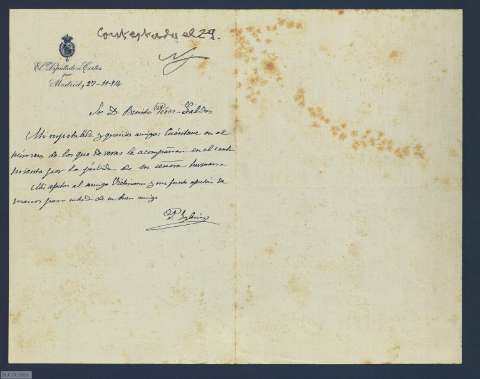 Contestada el 29.
El Diputado a Cortes
por
Madrid, 27-11-14
Sr. D. Benito Pérez Galdós
Mi respetable y querido amigo: Cuéntame en el
número de los que de veras le acompañan en el sent
imiento por la pérdida de su señora hermana.
Mis afectos al amigo Victoriano y un fuerte apretón de
manos para usted de su buen amigo
P. Iglesias